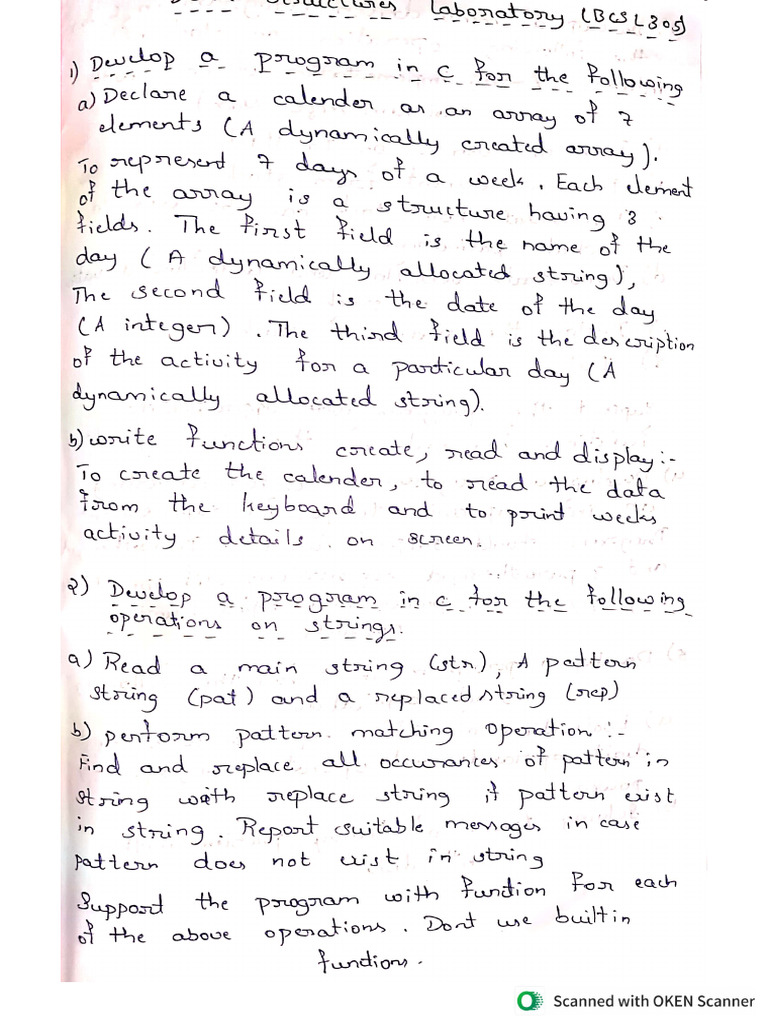 Structures Laboratory (BCSL305)
1) Develop a program in c for the following
a) Declare a calender as an array of 7
elements (A dynamically created array).
To represent 7 days of a week. Each element
of the array is a structure having 3
fields. The first field is the name of the
day (A dynamically allocated string),
The second field is the date of the day
(A integer). The third field is the description
of the activity for a particular day (A
dynamically allocated string).
b) write functions create, read and display:-
To create the calender, to read the data
from the keyboard and to print weeks
activity details on screen.
2) Develop a program in c for the following
operations on strings.
a) Read a main string (str), A pattern
string (pat) and a replaced string (rep)
b) perform pattern matching operation:-
Find and replace all occurances of pattern in
string with replace string if pattern exist
in string. Report suitable messages in case
pattern does not exist in string
Support the program with function for each
of the above operations. Dont use builtin
functions.
Scanned with OKEN Scanner